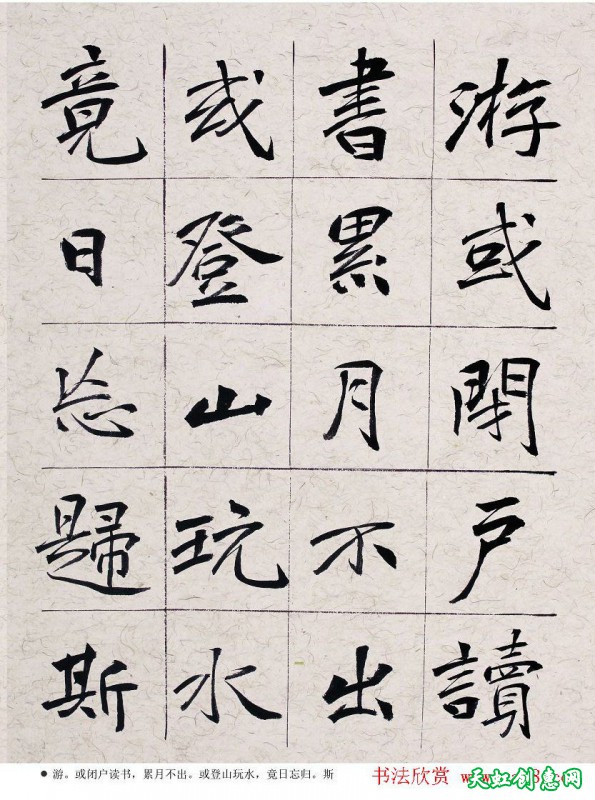 游或閉戶讀
書累月不出
或登山玩水
竟日忘歸斯
● 游。或闭户读书，累月不出。或登山玩水，竟日忘归。斯
书法欣赏
天虹创意网